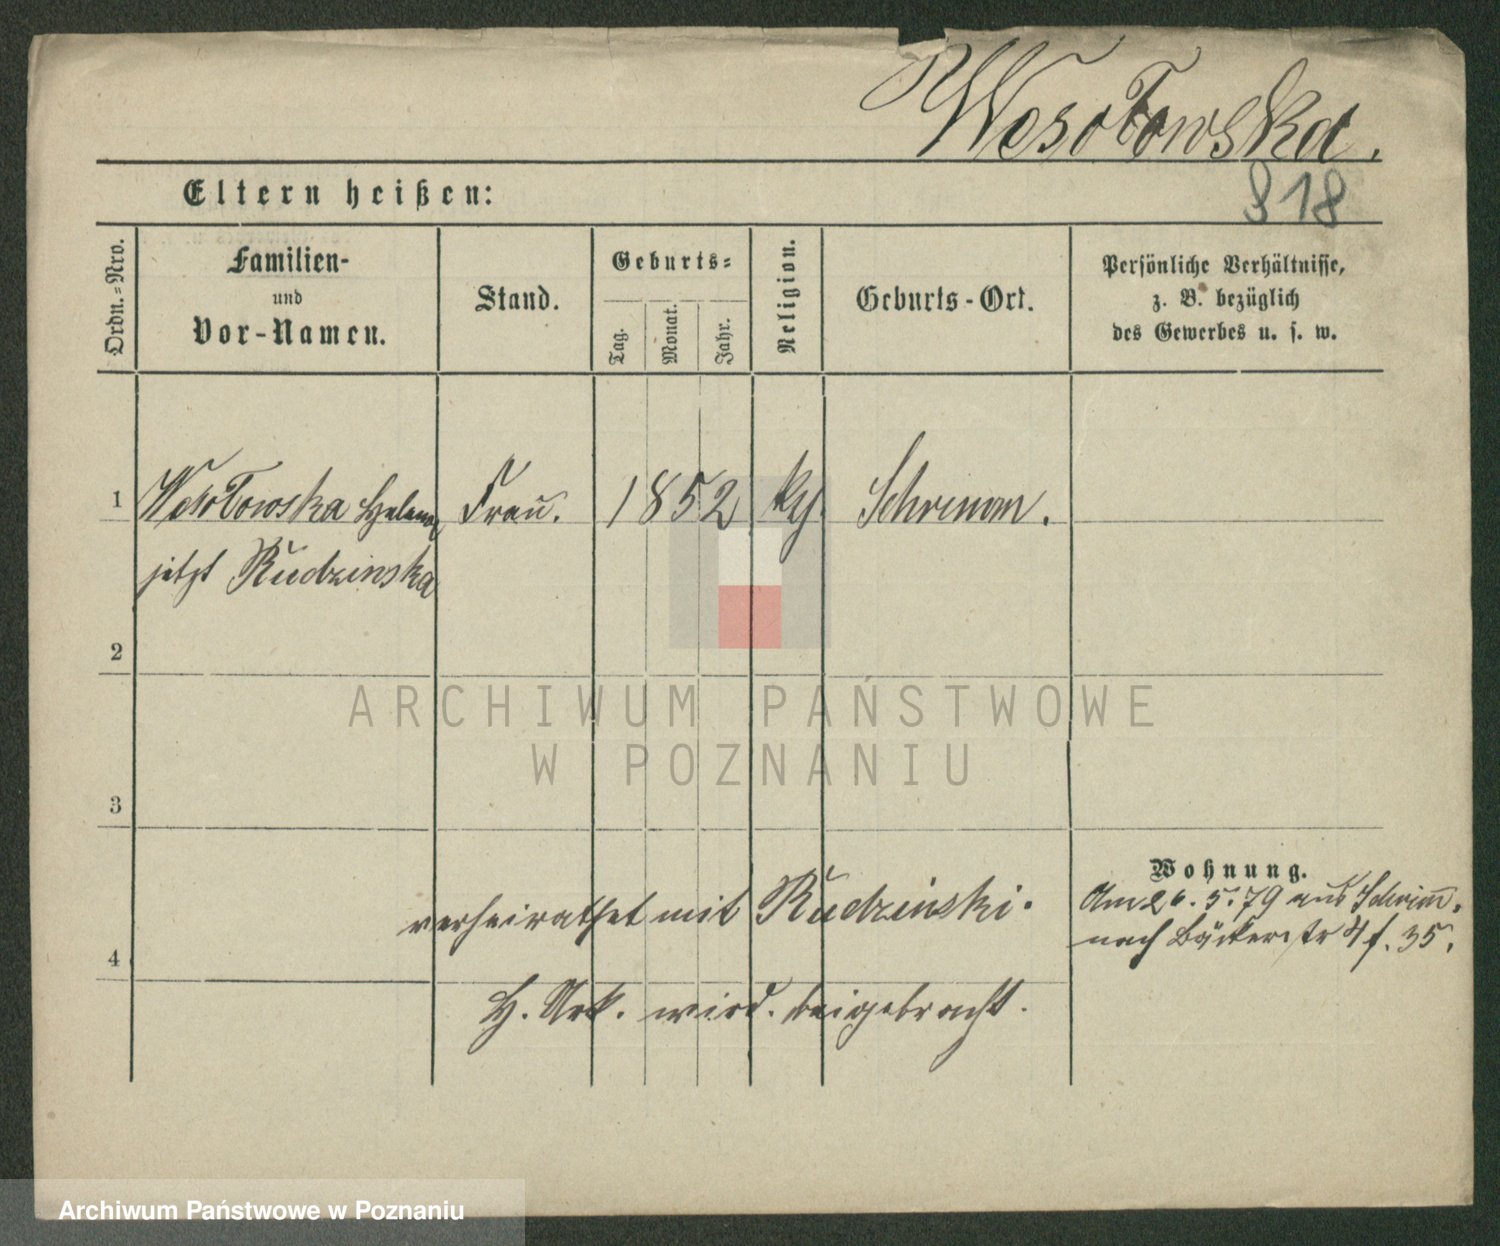 Wesołowska.
818
Eltern heißen:
Ordn.-Nro.
Familien-
und
Vor-Namen.
Stand.
Geburts-
Tag.
Monat.
Jahr.
Religion.
Geburts-Ort.
Persönliche Verhältnisse,
z. B. bezüglich
des Gewerbes u. s. w.
1
Wesołowska Helena
Frau.
1852
kth.
Schrimm.
jetzt Rudzinska
2
ARCHIWUM PAŃSTWOWE
W POZNANIU
3
Wohnung.
Am 26. 5. 79 aus Schrimm,
nach Bäckerstr 4 f. 35.
verheirathet mit Rudzinski.
4
H. Urk. wird beigebracht.
Archiwum Państwowe w Poznaniu